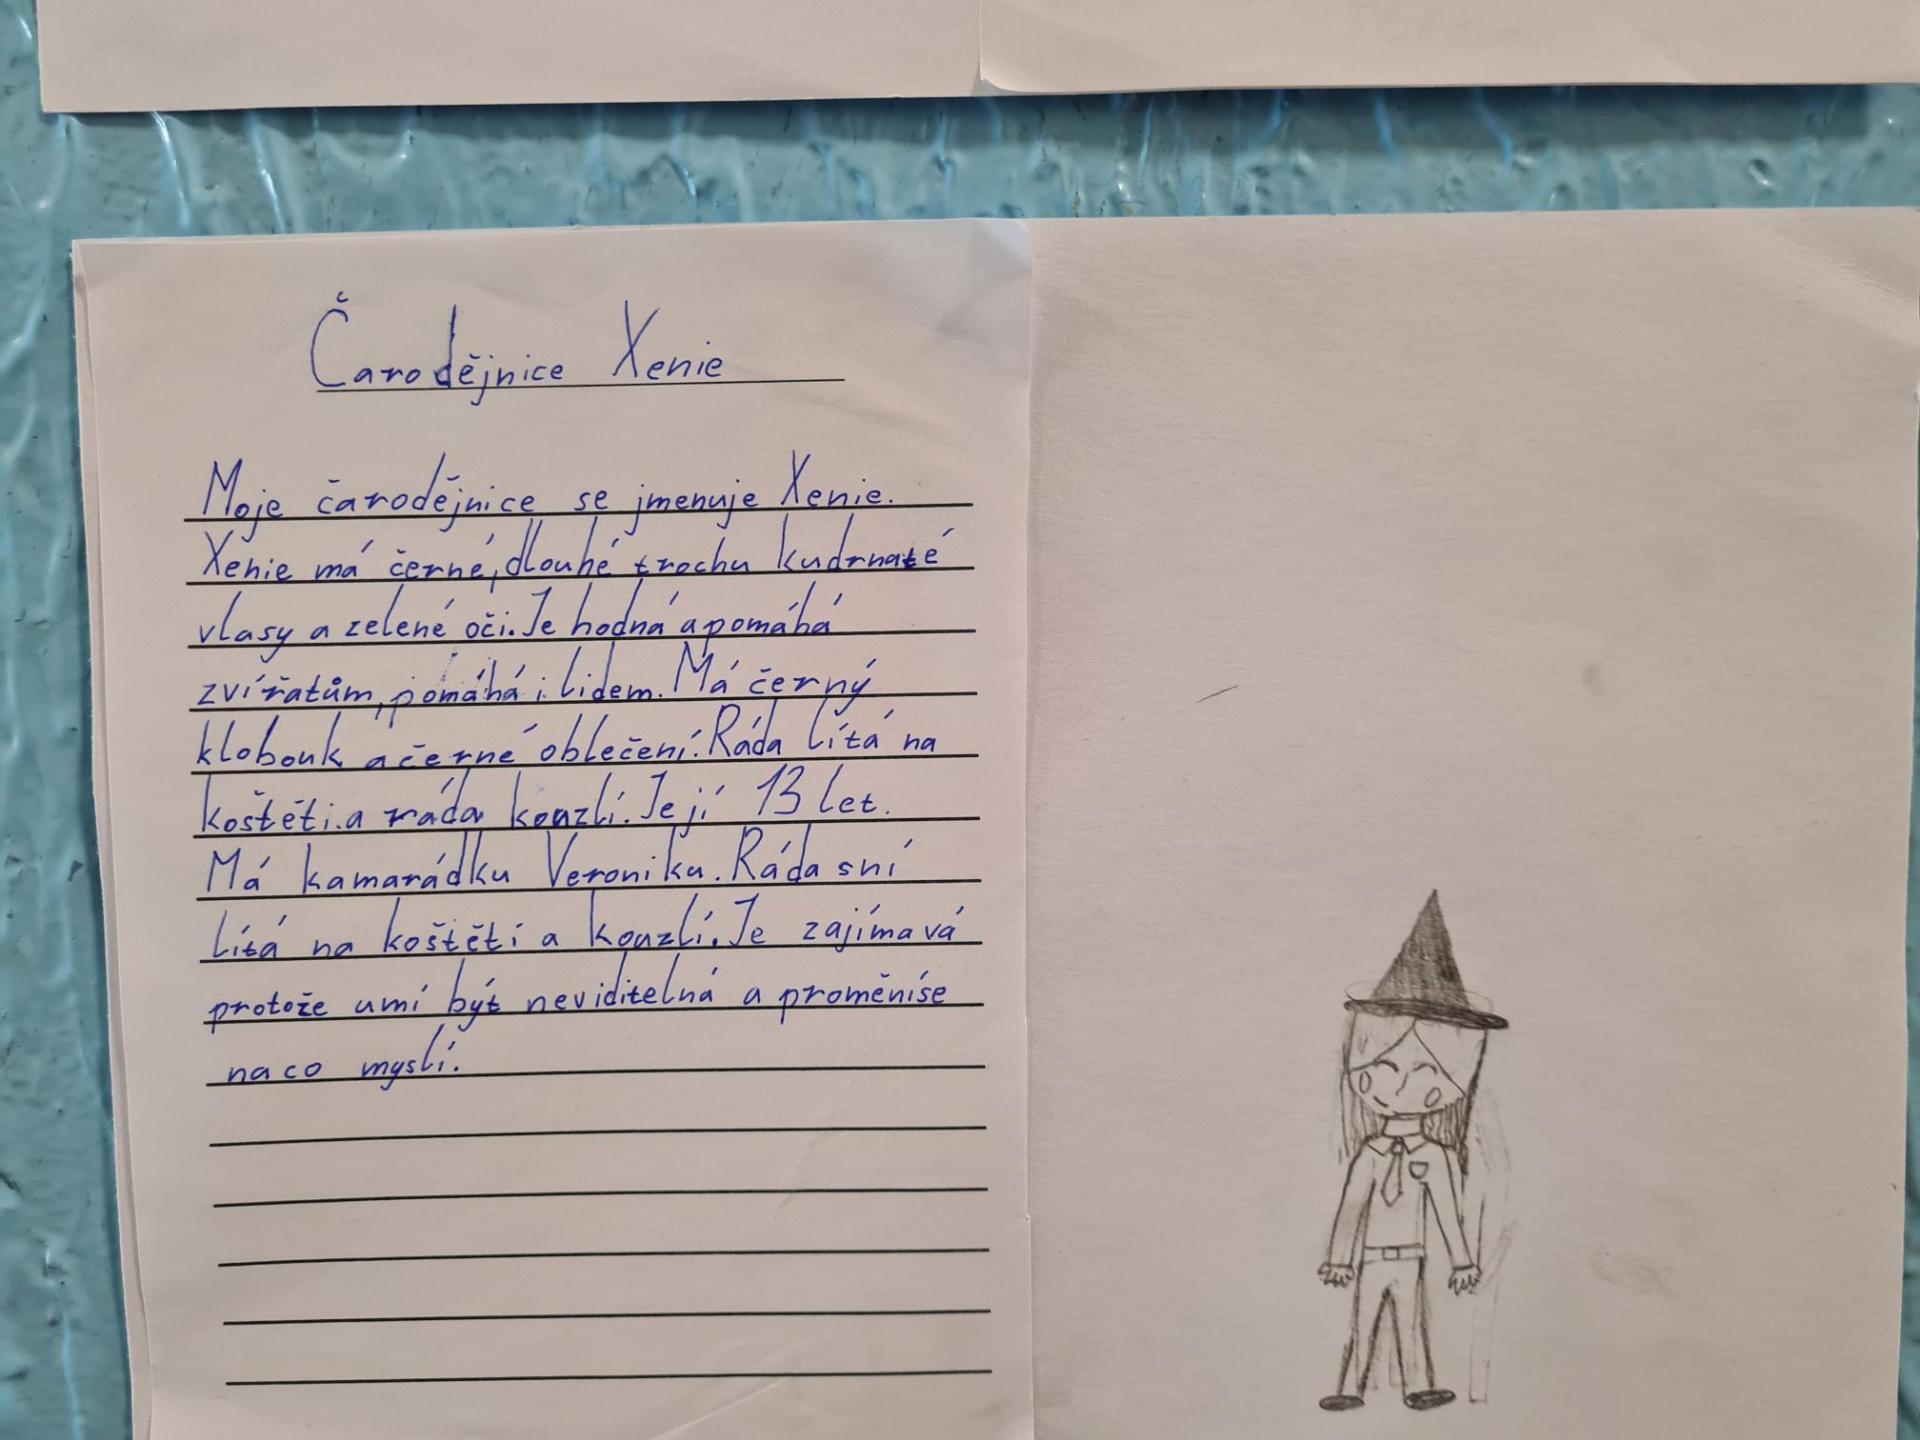 Čarodějnice Xenie
Moje čarodějnice se jmenuje Xenie.
Xenie má černé, dlouhé trochu kudrnaté
vlasy a zelené oči. Je hodná a pomáhá
zvířatům, pomáhá i lidem. Má černý
klobouk a černé oblečení. Ráda lítá na
koštěti a ráda kouzlí. Je jí 13 let.
Má kamarádku Veroniku. Ráda sní
lítá na koštětí a kouzlí. Je zajímavá
protože umí být neviditelná a proměníse
na co myslí.